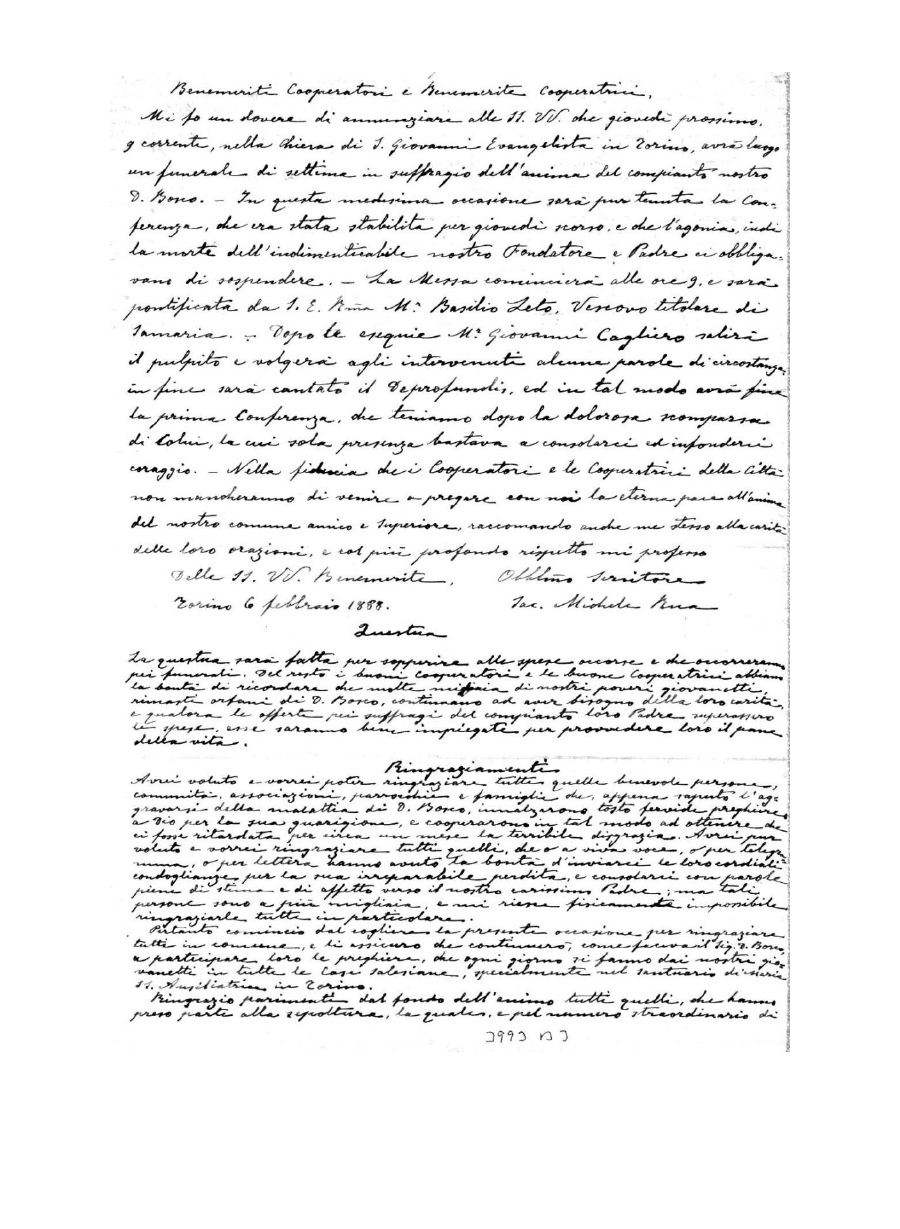 Benemeriti Cooperatori e Benemerite Cooperatrici,
Mi fo un dovere di annunziare alle SS. VV. che giovedì prossimo,
9 corrente, nella Chiesa di S. Giovanni Evangelista in Torino, avrà luogo
un funerale di settima in suffragio dell'anima del compianto nostro
D. Bosco. – In questa medesima occasione sarà pur tenuta la Con-
ferenza, che era stata stabilita per giovedì scorso, e che l'agonia, indi
la morte dell'indimenticabile nostro Fondatore e Padre ci obbliga-
vano di sospendere. – La Messa comincierà alle ore 9, e sarà
pontificata da S. E. Rma Mr. Basilio Leto, Vescovo titolare di
Samaria. – Dopo le esequie Mr. Giovanni Cagliero salirà
il pulpito e volgerà agli intervenuti alcune parole di circostanza,
in fine sarà cantato il Deprofundis, ed in tal modo avrà fine
la prima Conferenza, che teniamo dopo la dolorosa scomparsa
di Colui, la cui sola presenza bastava a consolarci ed infonderci
coraggio. – Nella fiducia che i Cooperatori e le Cooperatrici della Città
non mancheranno di venire a pregare con noi la eterna pace all'anima
del nostro comune amico e Superiore, raccomando anche me stesso alla carità
delle loro orazioni, e col più profondo rispetto mi professo
Delle SS. VV. Benemerite, Obblmo Servitore
Torino 6 febbraio 1888. Sac. Michele Rua
Questua
La questua sarà fatta per sopperire alle spese occorse e che occorreranno
pei funerali. Del resto i buoni Cooperatori e le buone Cooperatrici abbiano
la bontà di ricordare che molte migliaia di nostri poveri giovanetti,
rimasti orfani di D. Bosco, continuano ad aver bisogno della loro carità,
e qualora le offerte pei suffragi del compianto loro Padre superassero
le spese, esse saranno bene impiegate per provvedere loro il pane
della vita.
Ringraziamenti
Avrei voluto e vorrei poter ringraziare tutte quelle benevole persone,
comunità, associazioni, parrocchie e famiglie che, appena saputo l'ag-
gravarsi della malattia di D. Bosco, innalzarono tosto fervide preghiere
a Dio per la sua guarigione, e cooperarono in tal modo ad ottenere che
ci fosse ritardata per circa un mese la terribile disgrazia. Avrei pur
voluto e vorrei ringraziare tutti quelli, che o a viva voce, o per telegr-
mma, o per lettera hanno avuto la bontà d'inviarci le loro cordiali
condoglianze per la sua irreparabile perdita, e consolarci con parole
piene di stima e di affetto verso il nostro carissimo Padre; ma tali
persone sono a più migliaia, e mi riesce fisicamente impossibile
ringraziarle tutte in particolare.
Pertanto comincio dal cogliere la presente occasione per ringraziare
tutti in comune, e li assicuro che continuerò, come faceva il Sig. D. Bosco,
a participare loro le preghiere, che ogni giorno si fanno dai nostri gio-
vanetti in tutte le Case Salesiane, specialmente nel santuario di Maria
SS. Ausiliatrice in Torino.
Ringrazio parimenti dal fondo dell'animo tutti quelli, che hanno
preso parte alla sepoltura, la quale, e pel numero straordinario di
3993 B 3